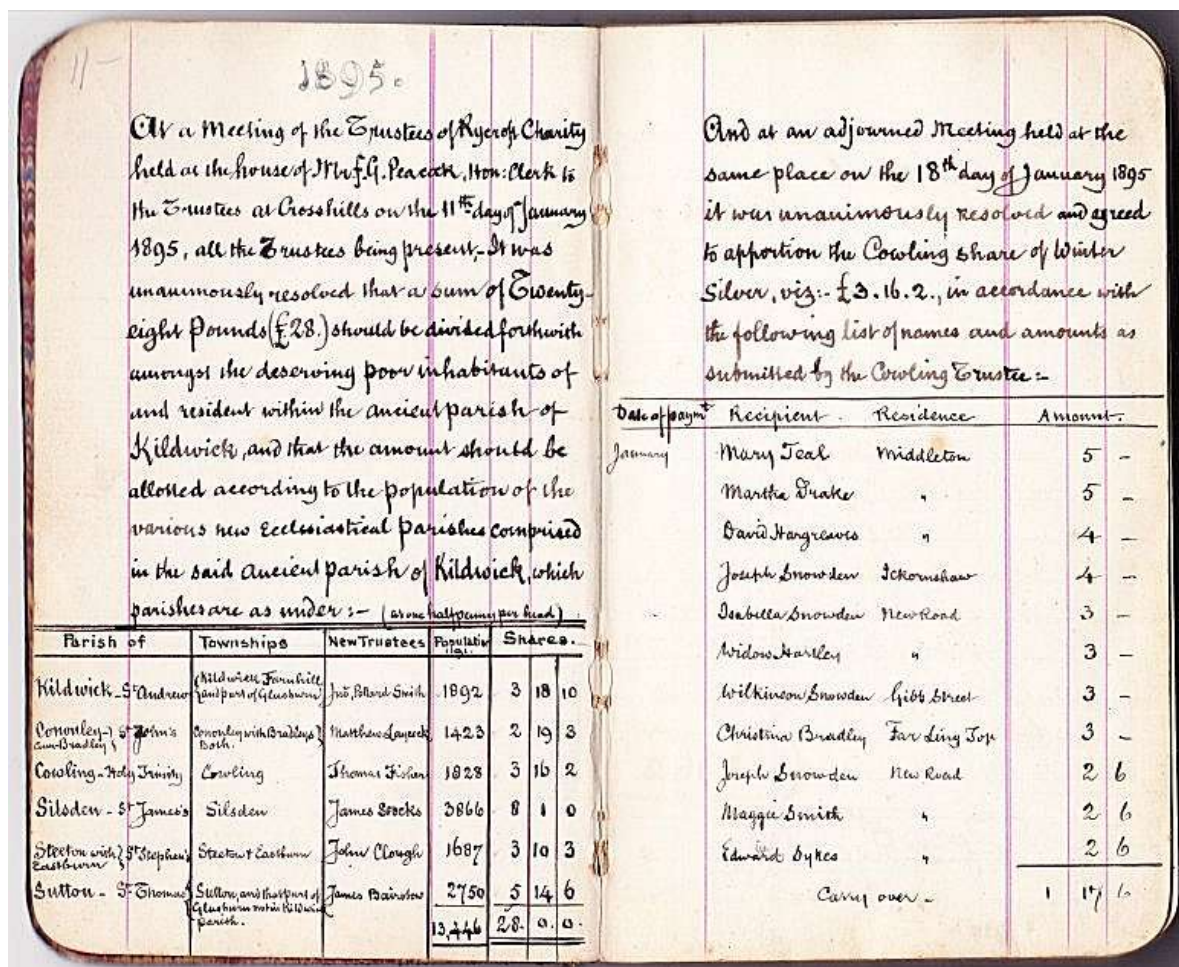 11-
1895.
At a Meeting of the Trustees of Rycroft Charity
held at the house of Mr F. G. Peacock, Hon: Clerk to
the Trustees at Crosshills on the 11th day of January
1895, all the Trustees being present,- It was
unanimously resolved that a sum of Twenty-
eight Pounds (£28.) should be divided forthwith
amongst the deserving poor inhabitants of
and resident within the ancient parish of
Kildwick, and that the amount should be
allotted according to the population of the
various new Ecclesiastical Parishes comprised
in the said ancient parish of Kildwick, which
parishes are as under :- (as one halfpenny per head)
Parish of Townships New Trustees Population Shares.
Kildwick - St Andrew Kildwick Farnhill and part of Glusburn Jno. Pollard Smith 1892 3 18 10
Cononley St John's Cononley with Bradleys Both. Matthew Laycock 1423 2 19 3
Cowling - Holy Trinity Cowling Thomas Fisher 1828 3 16 2
Silsden - St James's Silsden James Stocks 3866 8 1 0
Steeton with Eastburn St Stephen's Steeton & Eastburn John Clough 1687 3 10 3
Sutton - St Thomas Sutton, and that part of Glusburn not in Kildwick parish. James Bairstow 2750 5 14 6
13,446 28. 0. 0.
And at an adjourned Meeting held at the
same place on the 18th day of January 1895
it was unanimously resolved and agreed
to apportion the Cowling share of Winter
Silver, viz:- £3.16.2., in accordance with
the following list of names and amounts as
submitted by the Cowling Trustee :-
Date of paymt Recipient. Residence Amount.
January Mary Teal Middleton 5 -
Martha Drake " 5 -
David Hargreaves " 4 -
Joseph Snowden Ickornshaw 4 -
Isabella Snowden New Road 3 -
Widow Hartley " 3 -
Wilkinson Snowden Gibb Street 3 -
Christina Bradley Far Ling Top 3 -
Joseph Snowden New Road 2 6
Maggie Smith " 2 6
Edward Dykes " 2 6
Carry over - 1 17 6